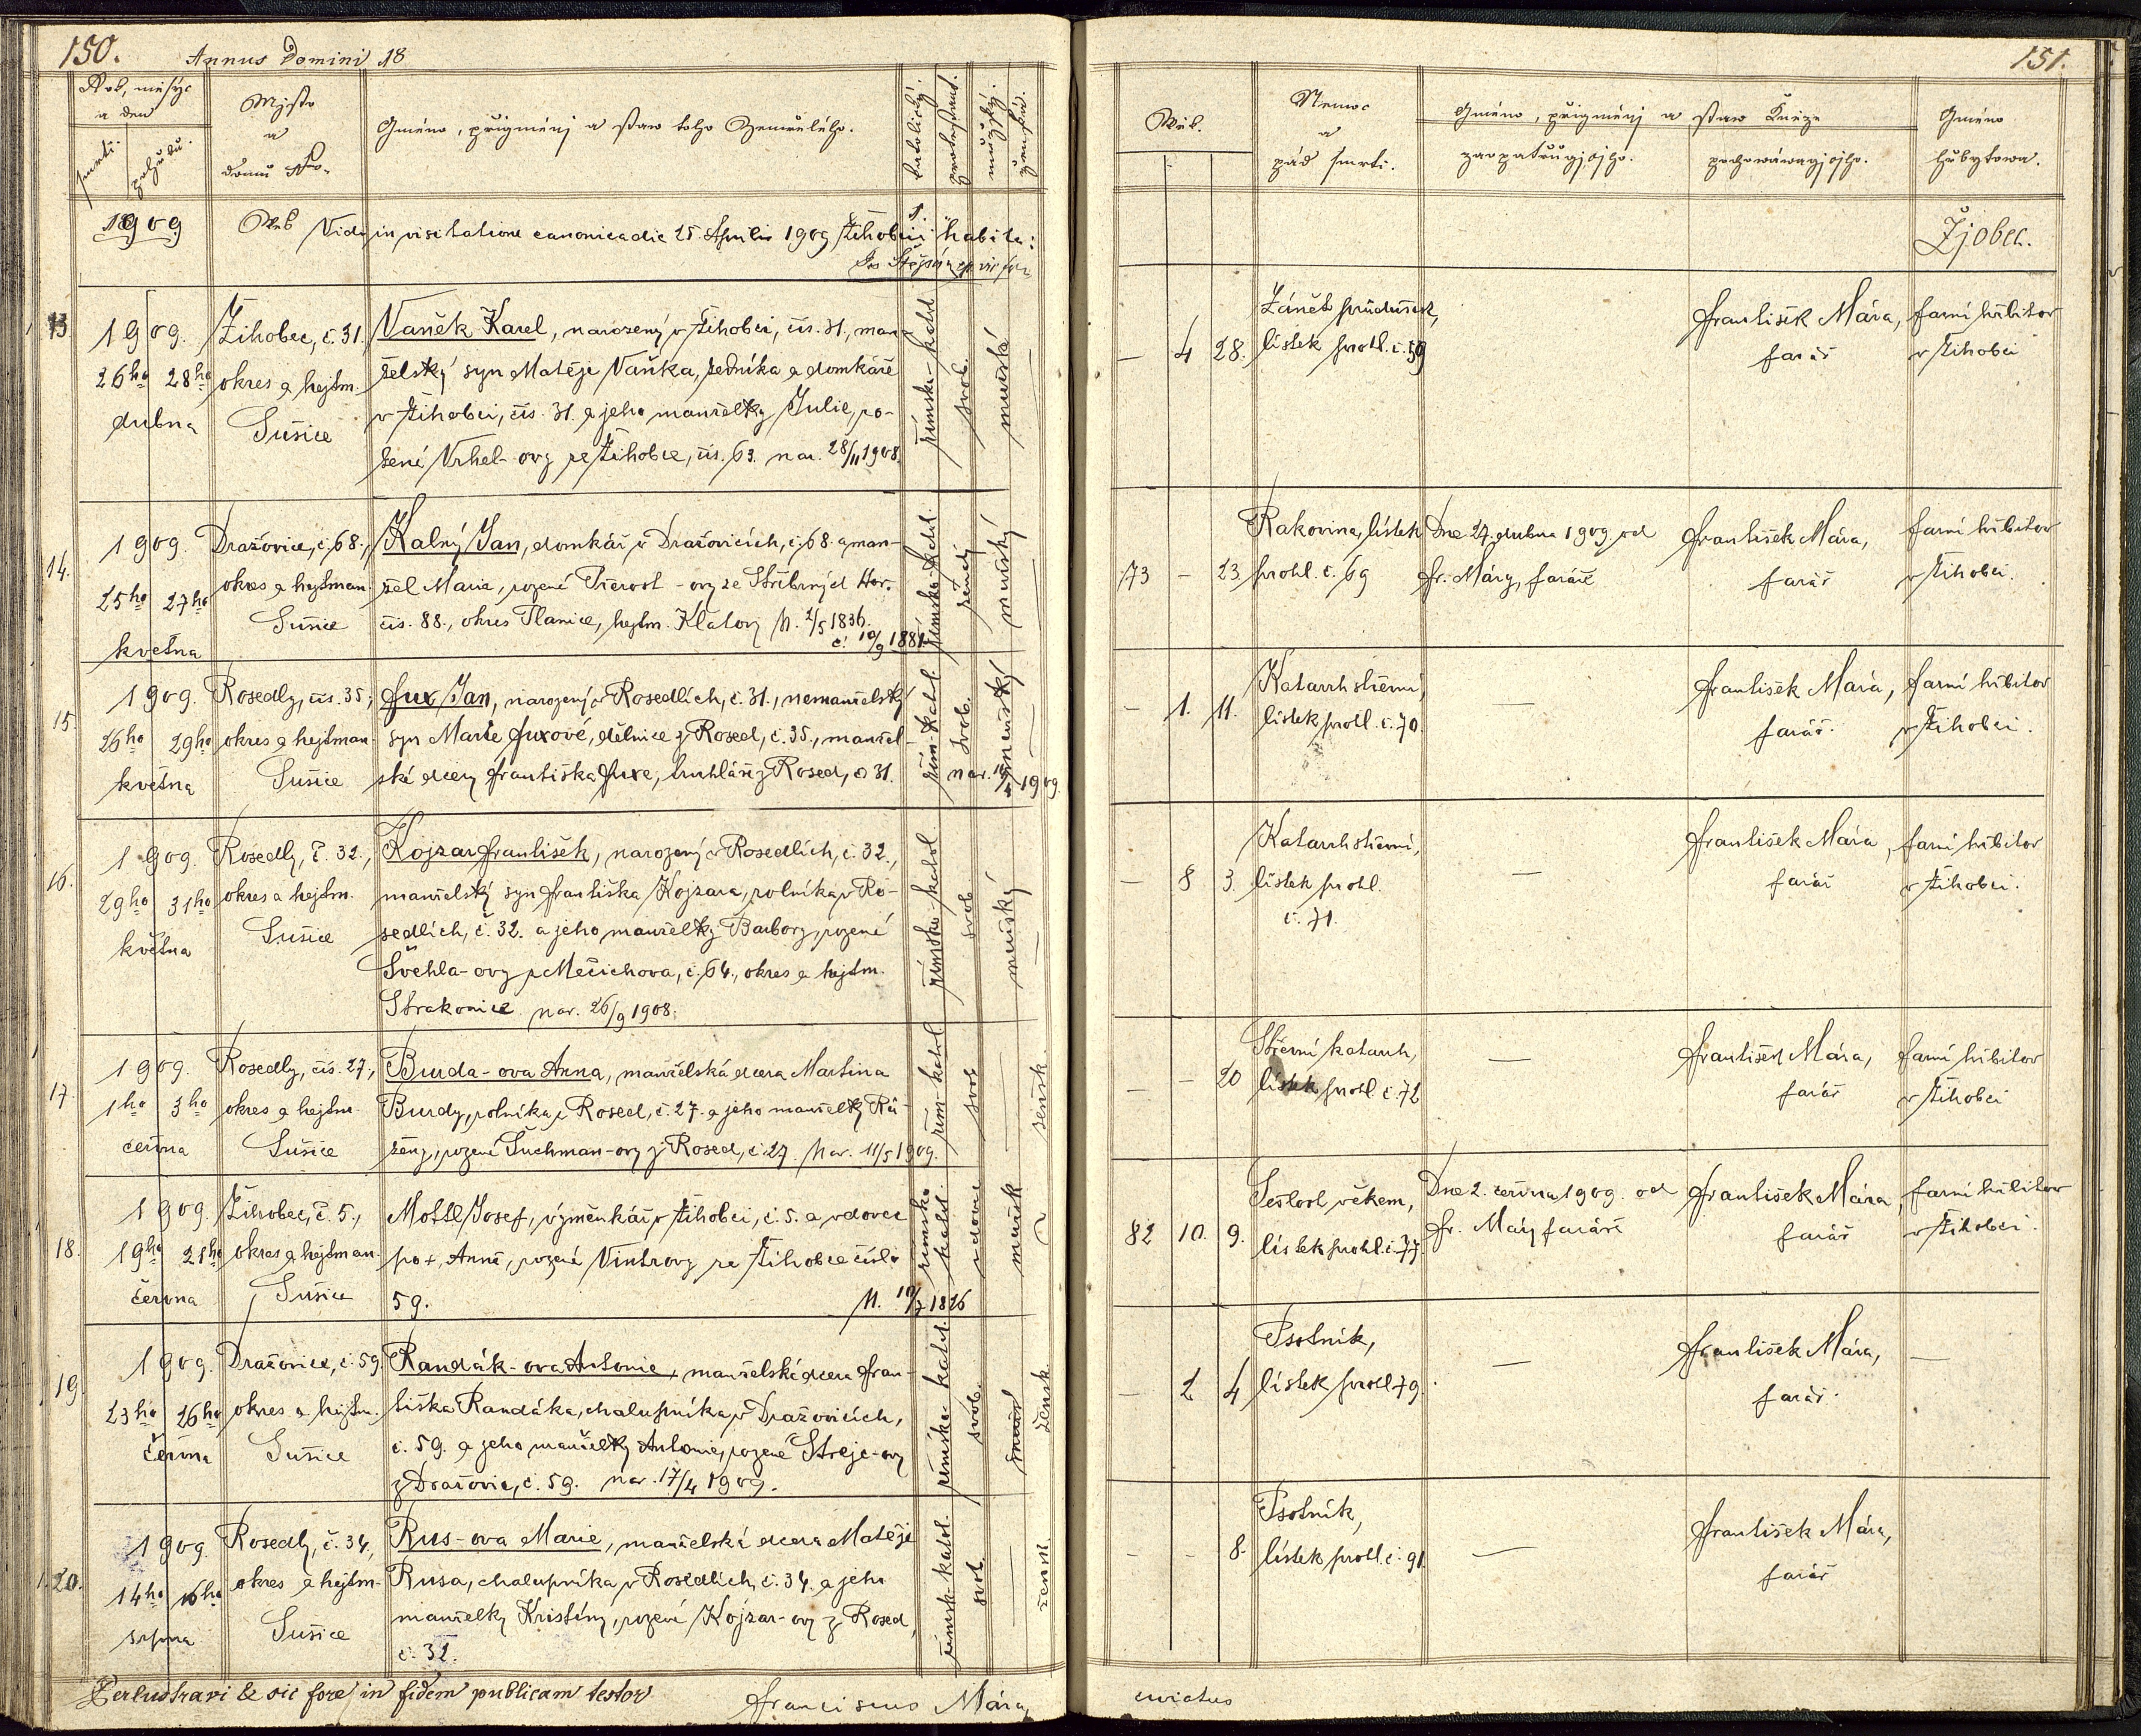 150.
Annus Domini 18
Rok, měsýc
a den
smrti.
pohřbu.
Mjsto
a
domu Nro.
Gméno, přigménj a staw toho Zemřelého.
katolický.
protestant.
mužský.
ženský.
1909
Wes
Vidi in visitatione canonica die 25. Aprilis 1909 Žihobcii habita:
13
1909.
26ho 28ho
dubna
Žihobec, č. 31.
okres a hejtm.
Sušice
Vaněk Karel, narozený v Žihobci, čís. 31., man-
želský syn Matěje Vaňka, zedníka a domkáře
v Žihobci, čís. 31. a jeho manželky Julie, ro-
zené Vrhel-ovy ze Žihobce, čís. 63. nar. 28/11 1908.
římsko-katol
svob.
mužské
14.
1909.
25ho 27ho
května
Dražovice, č. 68.,
okres a hejtman.
Sušice
Kalný Jan, domkář v Dražovicích, č. 68. a man-
žel Marie, rozené Prerost-ovy ze Stříbrných Hor.
čís. 88., okres Planice, hejtm. Klatovy N. 2/5 1836.
č. 10/9 1881.
římsko-katol.
ženatý
mužský
15.
1909.
26ho 29ho
května
Rosedly, čís. 35.,
okres a hejtman.
Sušice
Fux Jan, narozený v Rosedlích, č. 31., nemanželský
syn Marie Fuxové, dělnice z Rosed, č. 35., manžel-
ské dcery Františka Fuxe, truhláře z Rosed, č. 31.
řím-katol
svob.
mužský
nar. 1909
16.
1909.
29ho 31ho
května
Rosedly, č. 32.,
okres a hejtm.
Sušice
Kojzar František, narozený v Rosedlích, č. 32.,
manželský syn Františka Kojzara, rolníka v Ro-
sedlích, č. 32. a jeho manželky Barbory, rozené
Švehla-ovy z Mečichova, č. 64., okres a hejtm.
Strakonice nar. 26/9 1908.
římsko-katol
svob
mužský
17.
1909.
1ho 3ho
června
Rosedly, čís. 27.,
okres a hejtm.
Sušice
Burda-ova Anna, manželská dcera Martina
Burdy, rolníka z Rosed, č. 27. a jeho manželky Rů-
ženy, rozené Šuchman-ovy z Rosed, č. 27. Nar. 11/5 1909.
řím-katol
svob
žensk.
18.
1909.
19ho 21ho
června
Žihobec, č. 5.,
okres a hejtman.
Sušice
Mottl Josef, výměnkář v Žihobci, č. 5. a vdovec
po +, Anně, rozené Vintrovy ze Žihobce číslo
59. N. 10/7 1826
římsko
katol.
vdovec
mužsk
19.
1909.
23ho 26ho
června
Dražovice, č. 59.
okres a hejtm.
Sušice
Randák-ova Antonie, manželská dcera Fran-
tiška Randáka, chalupníka v Dražovicích,
č. 59. a jeho manželky Antonie, rozené Strejc-ovy
z Dražovic, č. 59. nar. 17/4 1909.
římsko-katol.
svob.
žensk
20.
1909.
14ho 16ho
srpna
Rosedly, č. 34.,
okres a hejtm.
Sušice
Rus-ova Marie, manželská dcera Matěje
Rusa, chalupníka v Rosedlích, č. 34. a jeho
manželky Kristiny, rozené Kojzar-ovy z Rosed,
č. 32.
římsk-katol.
svob.
žensk.
Perlustravi & sic fore, in fidem publicam testor
Franciscus Mára,
151.
Wěk.
Nemoc
a
pád smrti.
Gméno, přigménj a staw Kněze
zaopatřugjcjho.
pochowáwagjcjho.
Gméno
hřbytowa.
Žjobec.
— 4 28.
Zánět průdušek,
lístek prohl. č. 59
František Mára,
farář
farní hřbitov
v Žihobci
73 — 23
Rakovina, lístek
prohl. č. 69
Dne 27. dubna 1909 od
Fr. Máry, faráře
František Mára,
farář
farní hřbitov
v Žihobci.
— 1. 11.
Katarrh střevní,
lístek prohl. č. 70.
—
František Mára,
farář.
farní hřbitov
v Žihobci.
— 8 3.
Katarrh střevní,
lístek prohl.
č. 71.
—
František Mára,
farář
farní hřbitov
v Žihobci.
— — 20
Střevní katarrh,
lístek prohl. č. 72
—
František Mára,
farář
farní hřbitov
v Žihobci
82 10. 9.
Sešlost věkem,
lístek prohl. č. 77.
Dne 2. června 1909. od
Fr. Máry faráře
František Mára
farář
farní hřbitov
v Žihobci.
— 2 4
Psotník,
lístek prohl 79.
—
František Mára,
farář.
—
— — 8.
Psotník,
lístek prohl. č. 91.
—
František Mára,
farář
curatus